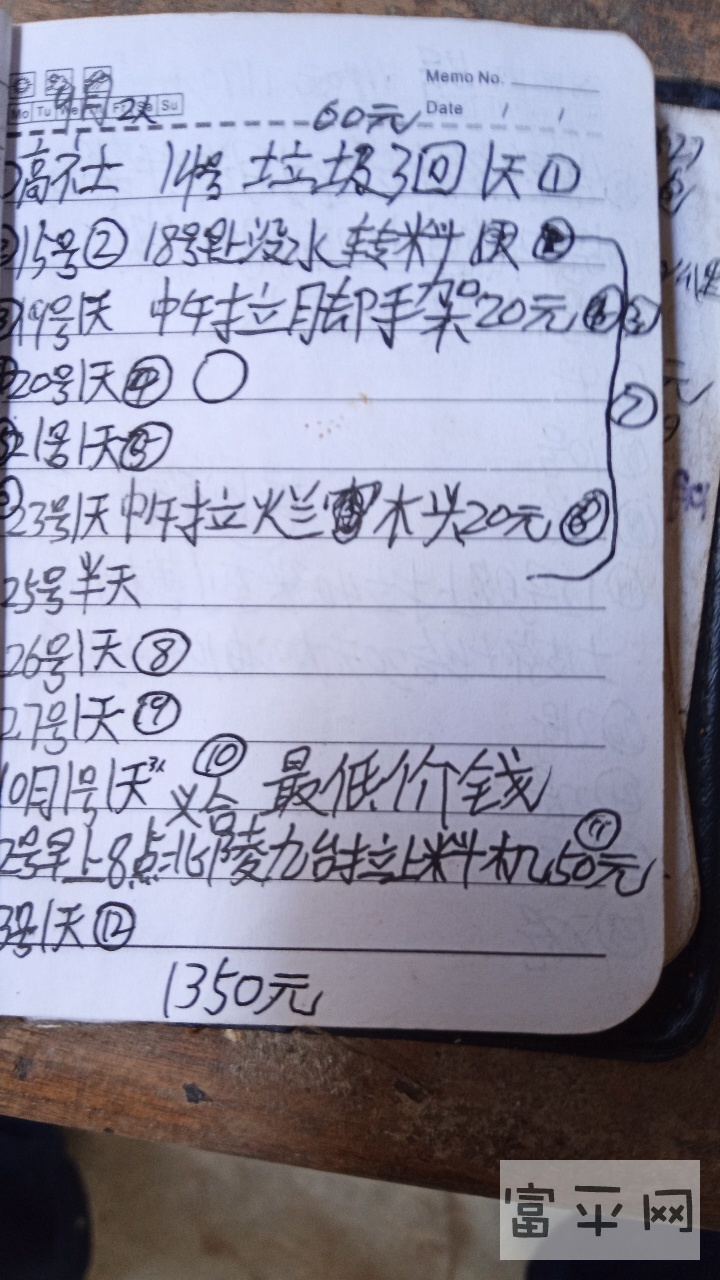 Memo No.
Mo Tu We Fr Sa Su
Date / /
9月 2人 60元
高社 14号 垃圾3回 1天 ①
15号 ② 18号早上没水转料
19号1天 中午拉脚手架20元 ③
20号1天 ④
21号1天 ⑤
23号1天中午拉烂木头20元 ⑥
⑦
25号半天
26号1天 ⑧
27号1天 ⑨
10月1号1天 3人 ⑩ 最低价钱
2号早上8点北陵九台拉上料机50元 ⑪
3号1天 ⑫
1350元
富平网